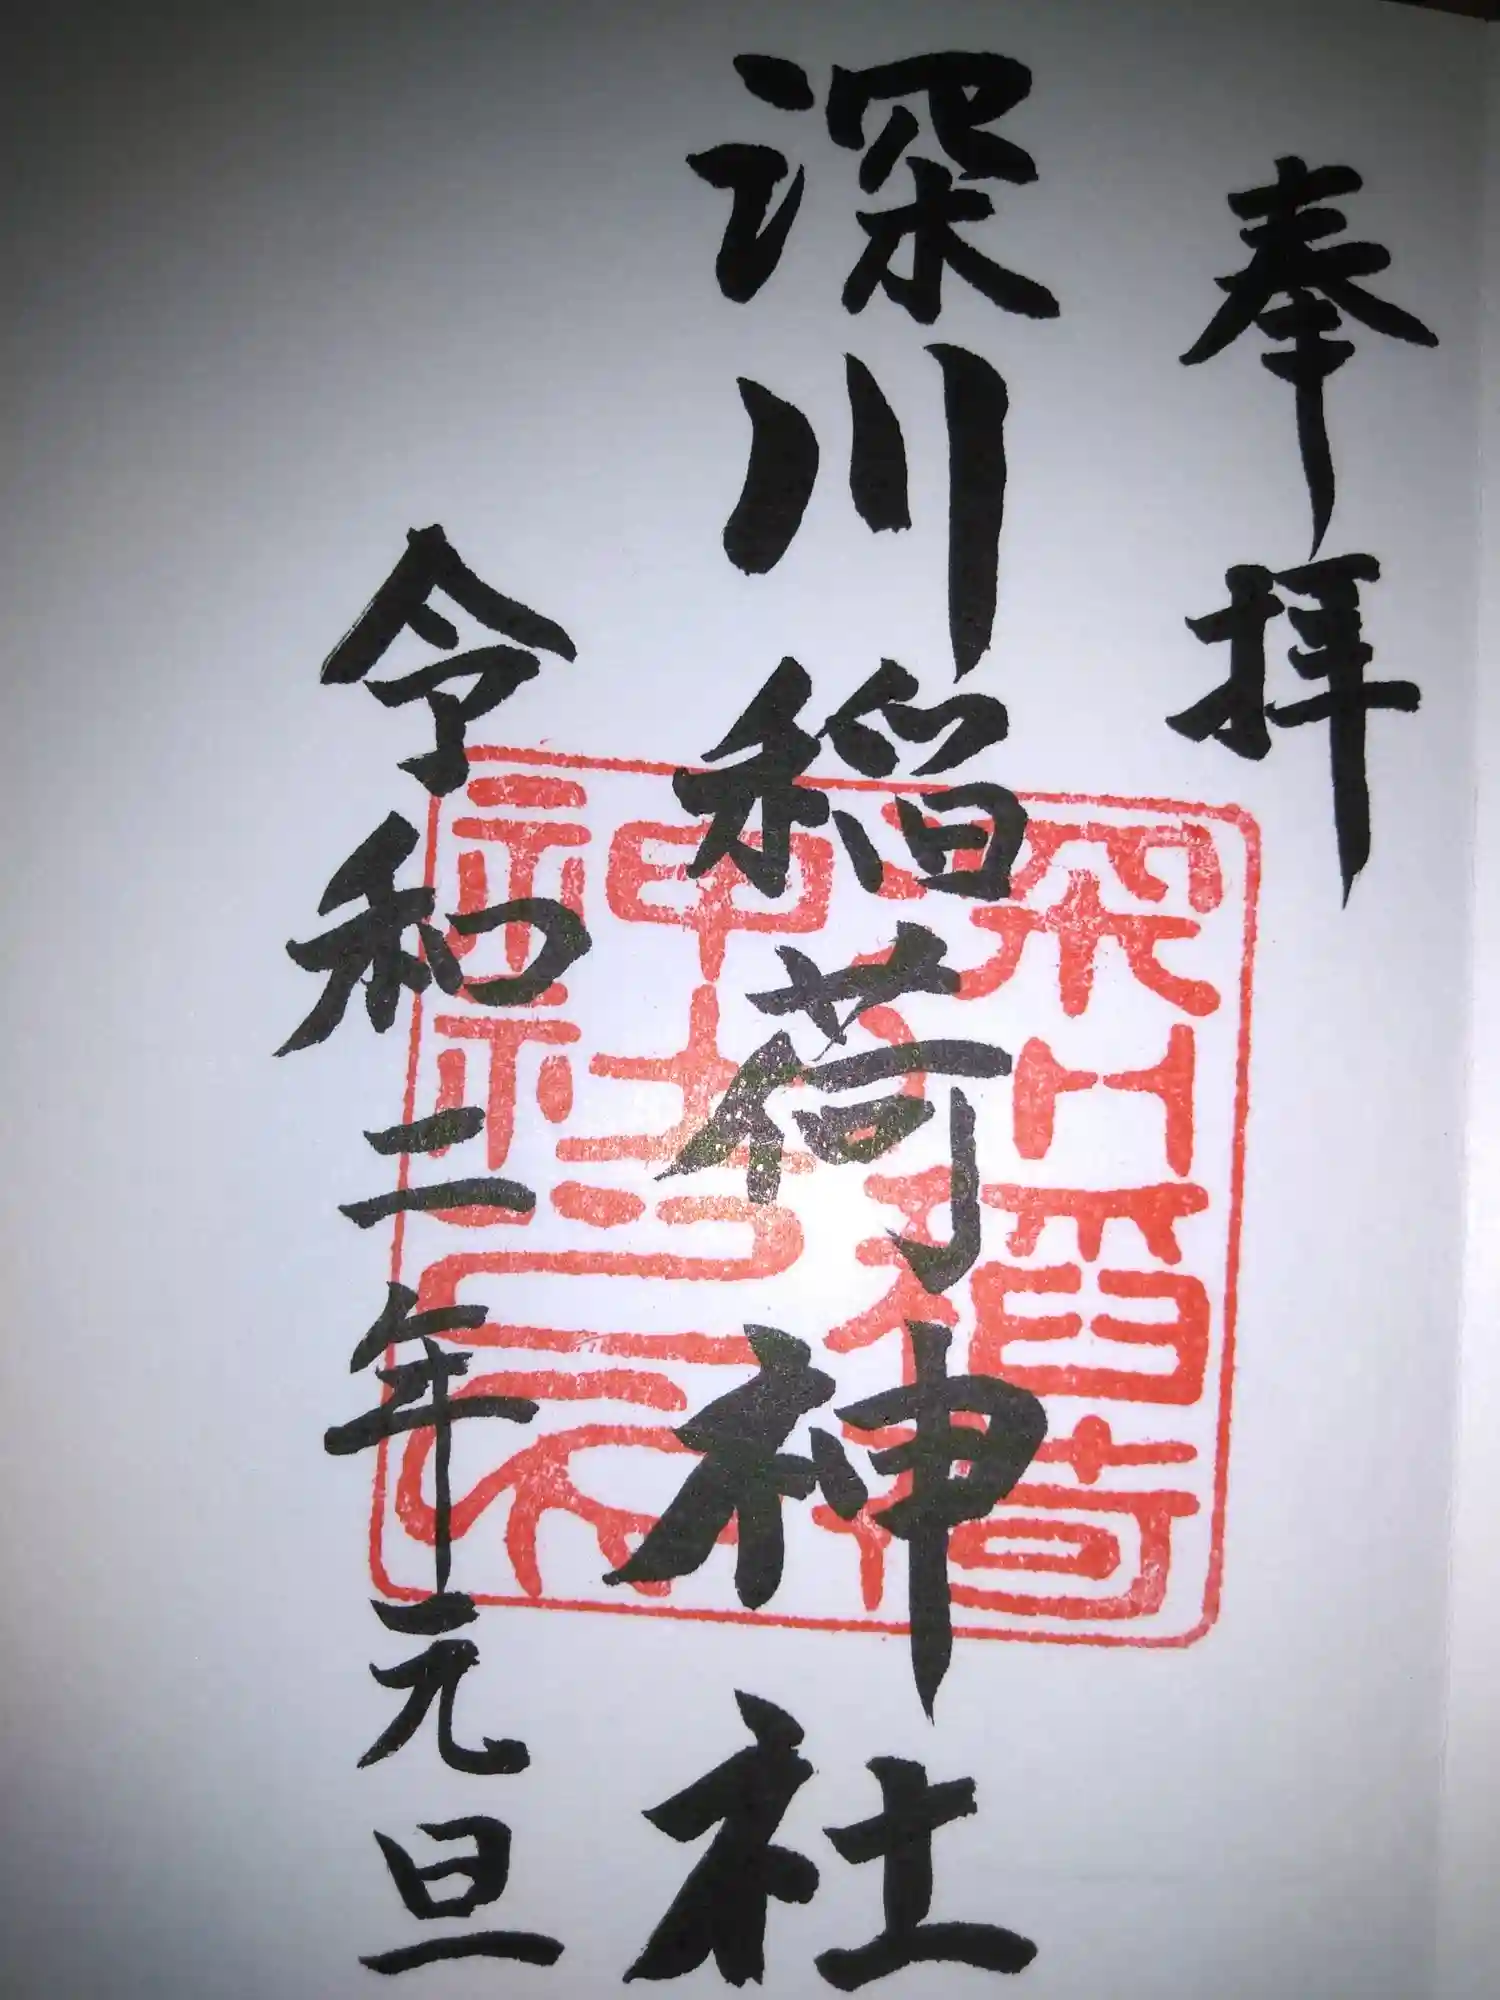 奉拝
深川稲荷神社
深川稲荷
神社
令和二年元旦